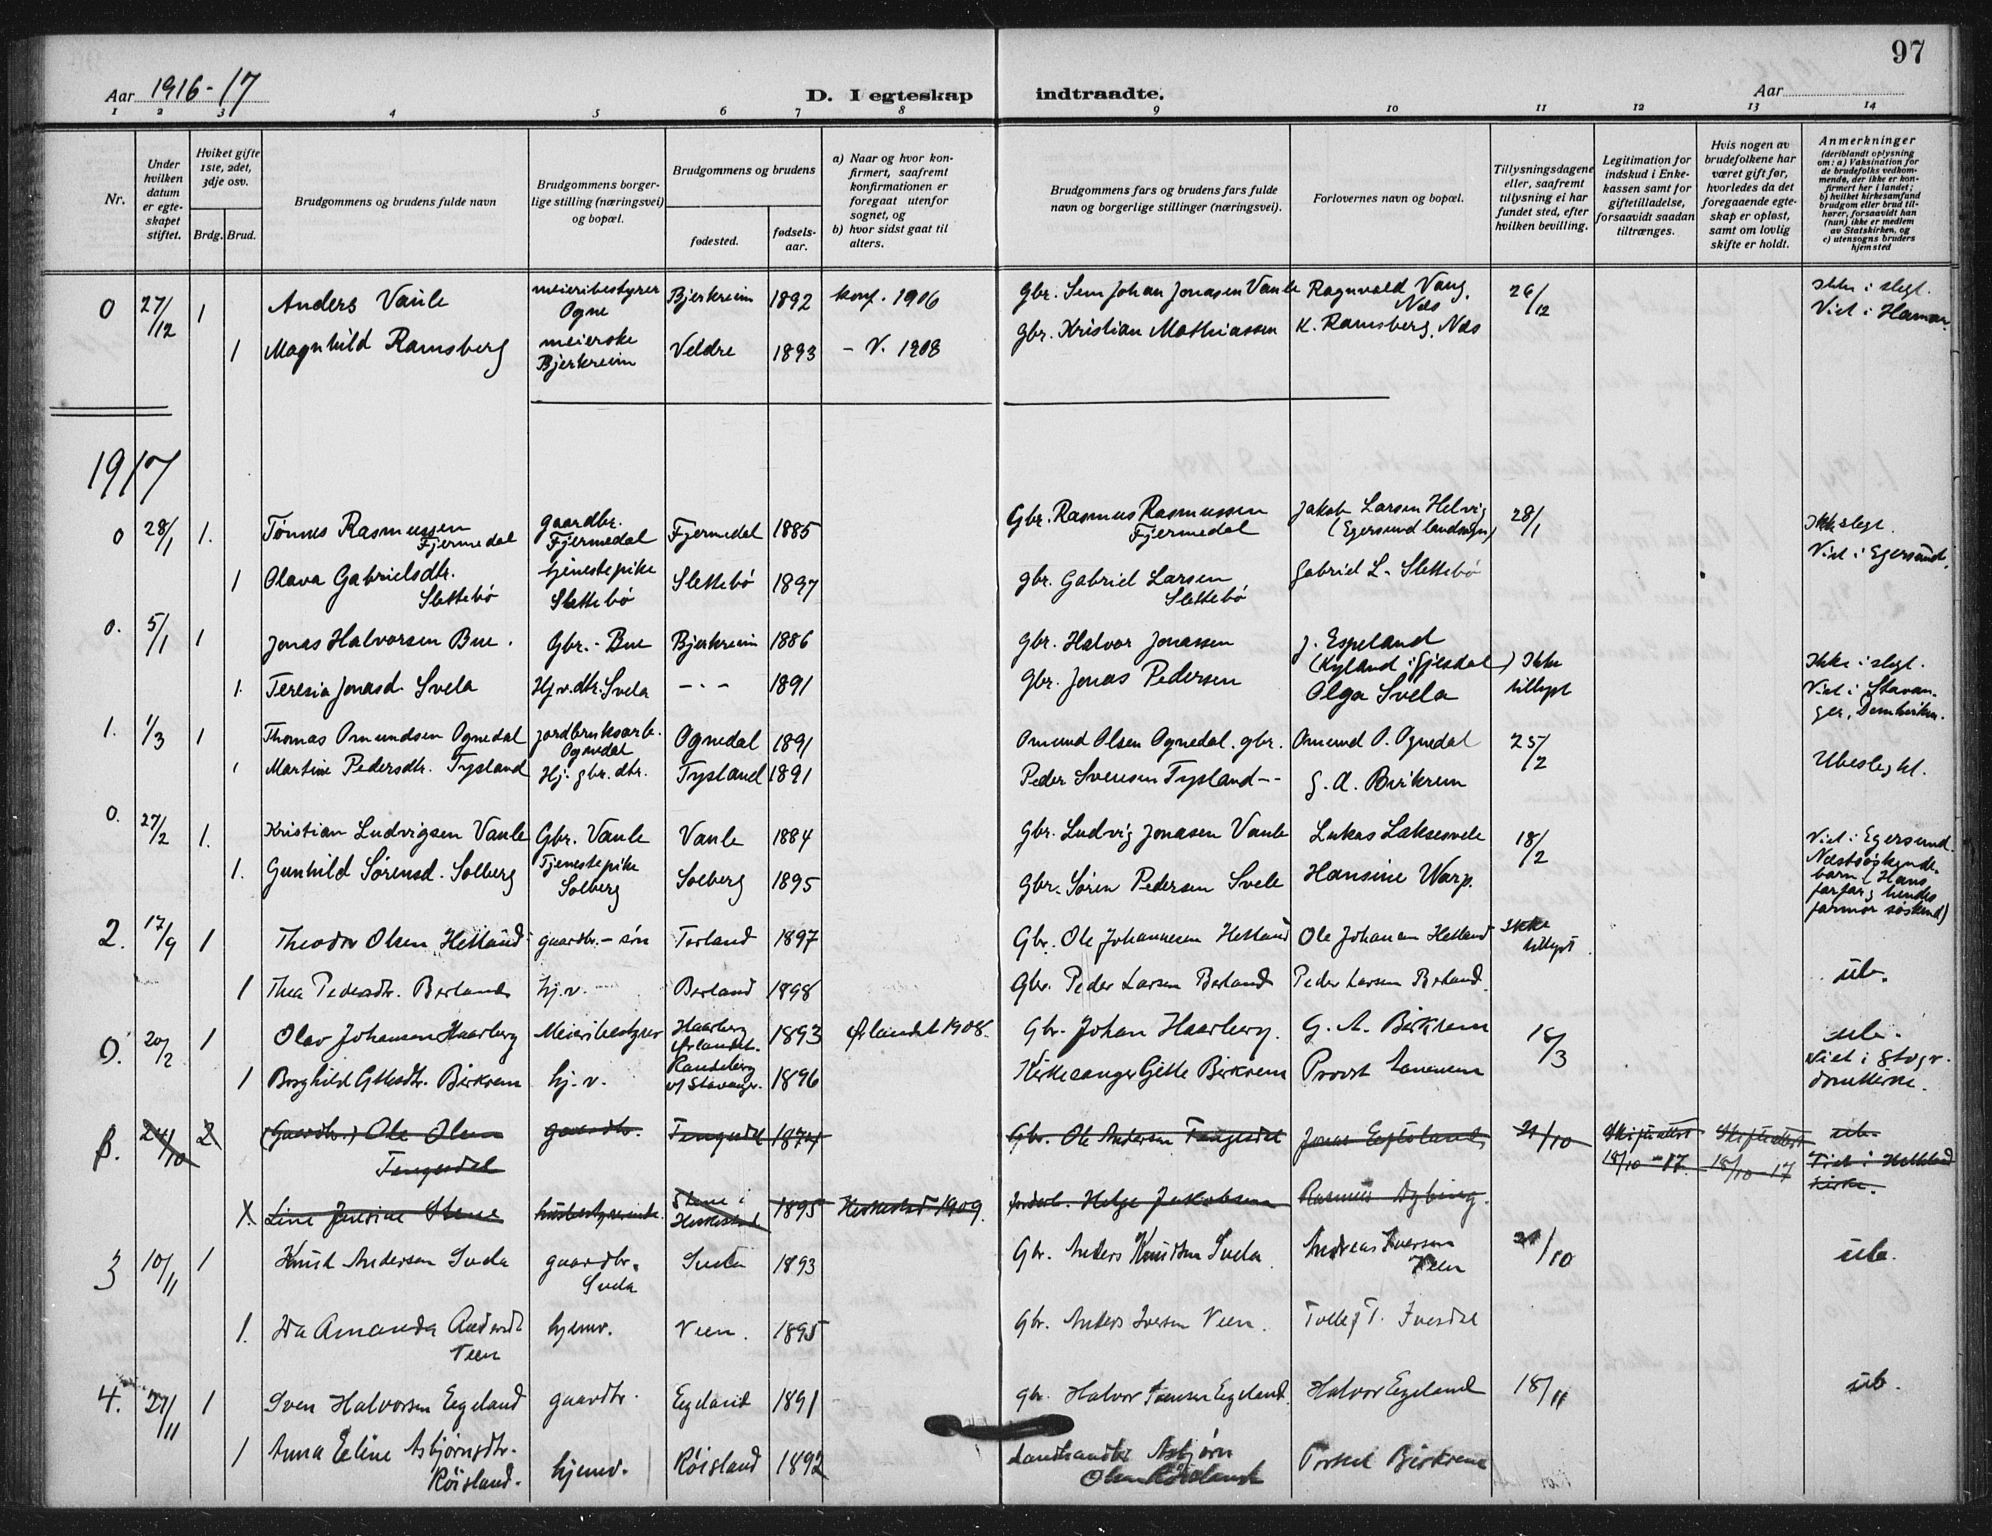 97
Aar 1916-17 D. I egteskap indtraadte. Aar
1 2 3 4 5 6 7 8 9 10 11 12 13 14
Nr.
Under hvilken datum er egteskapet stiftet.
Hviket gifte 1ste, 2det, 3dje osv.
Brdg. Brud.
Brudgommens og brudens fulde navn
Brudgommens borgerlige stilling (næringsvei) og bopæl.
Brudgommens og brudens
fødested.
fødselsaar.
a) Naar og hvor konfirmert, saafremt konfirmationen er foregaat utenfor sognet, og
b) hvor sidst gaat til alters.
Brudgommens fars og brudens fars fulde navn og borgerlige stillinger (næringsvei).
Forlovernes navn og bopæl.
Tillysningsdagene eller, saafremt tillysning ei har fundet sted, efter hvilken bevilling.
Legitimation for indskud i Enkekassen samt for giftetilladelse, forsaavidt saadan tiltrænges.
Hvis nogen av brudefolkene har været gift før, hvorledes da det foregaaende egteskap er opløst, samt om lovlig skifte er holdt.
Anmerkninger
(deriblandt oplysning om: a) Vaksination for de brudefolks vedkommende, der ikke er konfirmert her i landet; b) hvilket kirkesamfund brudgom eller brud tilhører, forsaavidt han (hun) ikke er medlem av Statskirken, og c) utensogns bruders hjemsted
0 27/12 1 Anders Vaule meieribestyrer Ogne Bjerkreim 1892 konf. 1906 Gbr. Sem Johan Jonasen Vaule Ragnvald Vang, Næs 26/12 Ikke i slegt. Viet i Hamar
1 Magnhild Ramsberg meierske Bjerkreim Veldre 1893 - V. 1908 Gbr. Kristian Mathiassen K. Ramsberg, Næs
1917
0 28/1 1. Tønnes Rasmussen Fjermedal gaardbr. Fjermedal Fjermedal 1885 Gbr. Rasmus Rasmussen Fjermedal Jakob Larsen Helvig (Egersund landsogn) 28/1 Ikke slegt. Viet i Egersund.
1 Olava Gabrielsdtr. Slettebø tjenestepike Slettebø Slettebø 1897 gbr. Gabriel Larsen Slettebø Gabriel L. Slettebø
0. 5/1 1 Jonas Halvorsen Bue. Gbr. - Bue Bjerkreim 1886 gbr. Halvor Jonassen J. Espeland (Kyland i Gjesdal) Ikke tillyst Ikke i slegt. Viet i Stavanger, Domkirken.
1. Teresia Jonasd. Svela Hj.v. dtr. Svela - - - 1891 gbr. Jonas Pedersen Olga Svela
1. 1/3 1 Thomas Omundsen Ognedal jordbruksarb. Ognedal Ognedal 1891 Omund Olsen Ognedal. gbr. Omund O. Ognedal 25/2 Ubeslegtet.
1 Martine Pedersdtr. Tysland Hj. gbr. dtr. Tysland 1891 Peder Svensen Tysland - - G. A. Birkrem
0. 27/2 1. Kristian Ludvigsen Vaule Gbr. Vaule Vaule 1884 Gbr. Ludvig Jonasen Vaule Lukas Laksesvele 18/2 Viet i Egersund. Næstsøskendebarn (Hans farfar & hendes farmor søskend)
1. Gunhild Sørensd. Solberg Tjenestepike Solberg Solberg 1895 Gbr. Søren Pedersen Svele Hansine Warp.
2. 17/9 1 Theodor Olsen Hetland gaardbr. - søn Torland 1897 Gbr. Ole Johannesen Hetland Ole Johansen Hetland Ikke tillyst ub.
1 Thea Pedersdtr. Berland hj.v. Berland 1898 Gbr. Peder Larsen Berland Peder Larsen Berland.
0. 20/2 1 Olav Johansen Haarberg Meieribestyrer Haarberg Ørlandet. 1893 Ørlandet 1908. Gbr. Johan Haarberg. G. A. Birkrem 18/3 ub. Viet i Stavgr. domkirke.
1 Borghild Gittesdtr. Birkrem hj. v. Randeberg v/ Stavangr. 1896 Kirkesanger Gitte Birkrem Provst
β. 24/10 2 (Gaardbr.) Ole Olsen Tengesdal gaardbr. Tengesdal 1874 Gbr. Ole Andersen Tengesdal Jonas 21/10 Skifteattest 18/10 - 17 Skifteattest 18/10 - 17 ub. Viet i Helleland kirke.
1. Line Stene husbestyrerinde. Stene i Heskestad 1895 Heskestad 1909. Helge Jakobsen Rasmus
3 10/11 1 Knud Andersen Svela gaardbr. Svela Svela 1893 Gbr. Anders Knudsen Svela Andreas Iversen Veen 21/10 ub.
1. Ida Amanda Andersdt. Veen hjemv. Veen. 1895 Gbr. Anders Iversen Veen. Tollef T. Ivesdal
4. 27/11 1 Sven Halvorsen Eegeland gaardbr. Eegeland 1891 gbr. Halvor Eegeland. Halvor Eegeland 18/11 ub.
1 Anna Eline Asbjørnsdtr. Røisland. hjemv. Røisland 1892 Asbjørn Olsen Røisland Torkel Birkrem